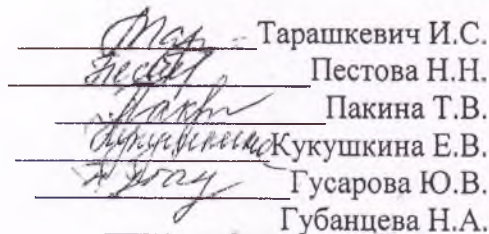 Тарашкевич И.С.
Пестова Н.Н.
Пакина Т.В.
Кукушкина Е.В.
Гусарова Ю.В.
Губанцева Н.А.